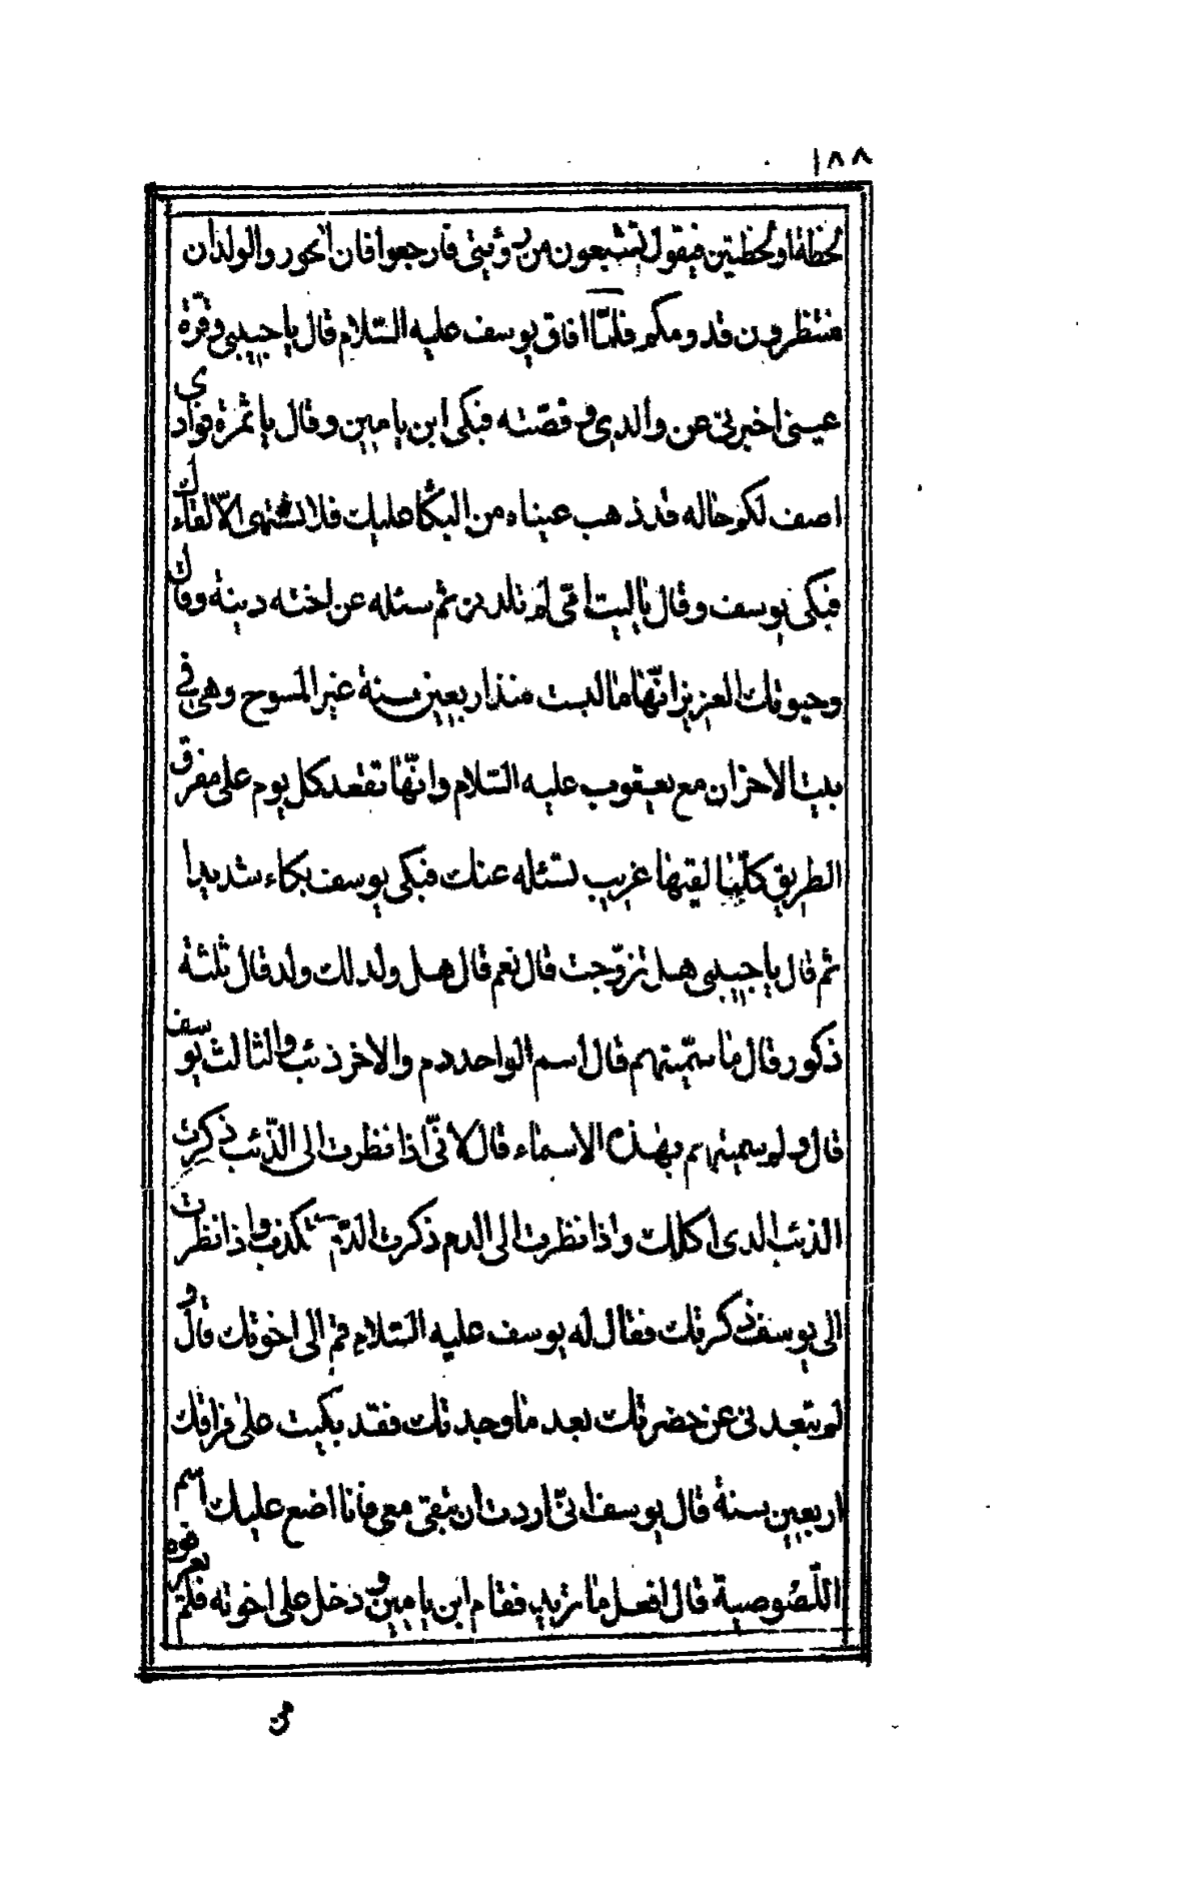 ١٨٨
لحظة او لحظتين فيقول تشبعون من رؤيتى فارجعوا فان الحور والولدان
منتظرون قدومكم فلمّا افاق يوسف عليه السّلام قال يا حبيبى وقرّة
عينى اخبرنى عن والدى وقصّته فبكى ابن يامين وقال يا ثمرة فوادى
اصف لكم حاله قد ذهب عيناه من البكاء عليك فلا تشتهى الّا لقاءك
فبكى يوسف وقال يا ليت امّى لم تلدنى ثم سئله عن اخته دينة وقال
وحيوتك العزيز انّها ما لبست منذ اربعين سنة غير المسوح وهى فى
بيت الاحزان مع يعقوب عليه السّلام وانّها تقعد كل يوم على مفرق
الطريق كلّما لقيها غريب تسئله عنك فبكى يوسف بكاء شديدا
ثم قال يا حبيبى هل تزوّجت قال نعم قال هل ولد لك ولد قال ثلثة
ذكور قال ما سمّيتهم قال اسم الواحد دم والاخر ذئب والثالث يوسف
قال ولم سميتهم بهذه الاسماء قال لانّى اذا نظرت الى الذّئب ذكرت
الذئب الذى اكلك واذا نظرت الى الدم ذكرت الدّم تكذب واذا نظرت
الى يوسف ذكرتك فقال له يوسف عليه السّلام قم الى اخوتك قال و
لم تبعدنى عن حضرتك بعد ما وجدتك فقد بكيت على فراقك
اربعين سنة قال يوسف انّى اردت ان تبقى معى فانا اضع عليك اسم
اللّصوصية قال افعل ما تريد فقام ابن يامين و دخل على اخوته فلم يعرفوه